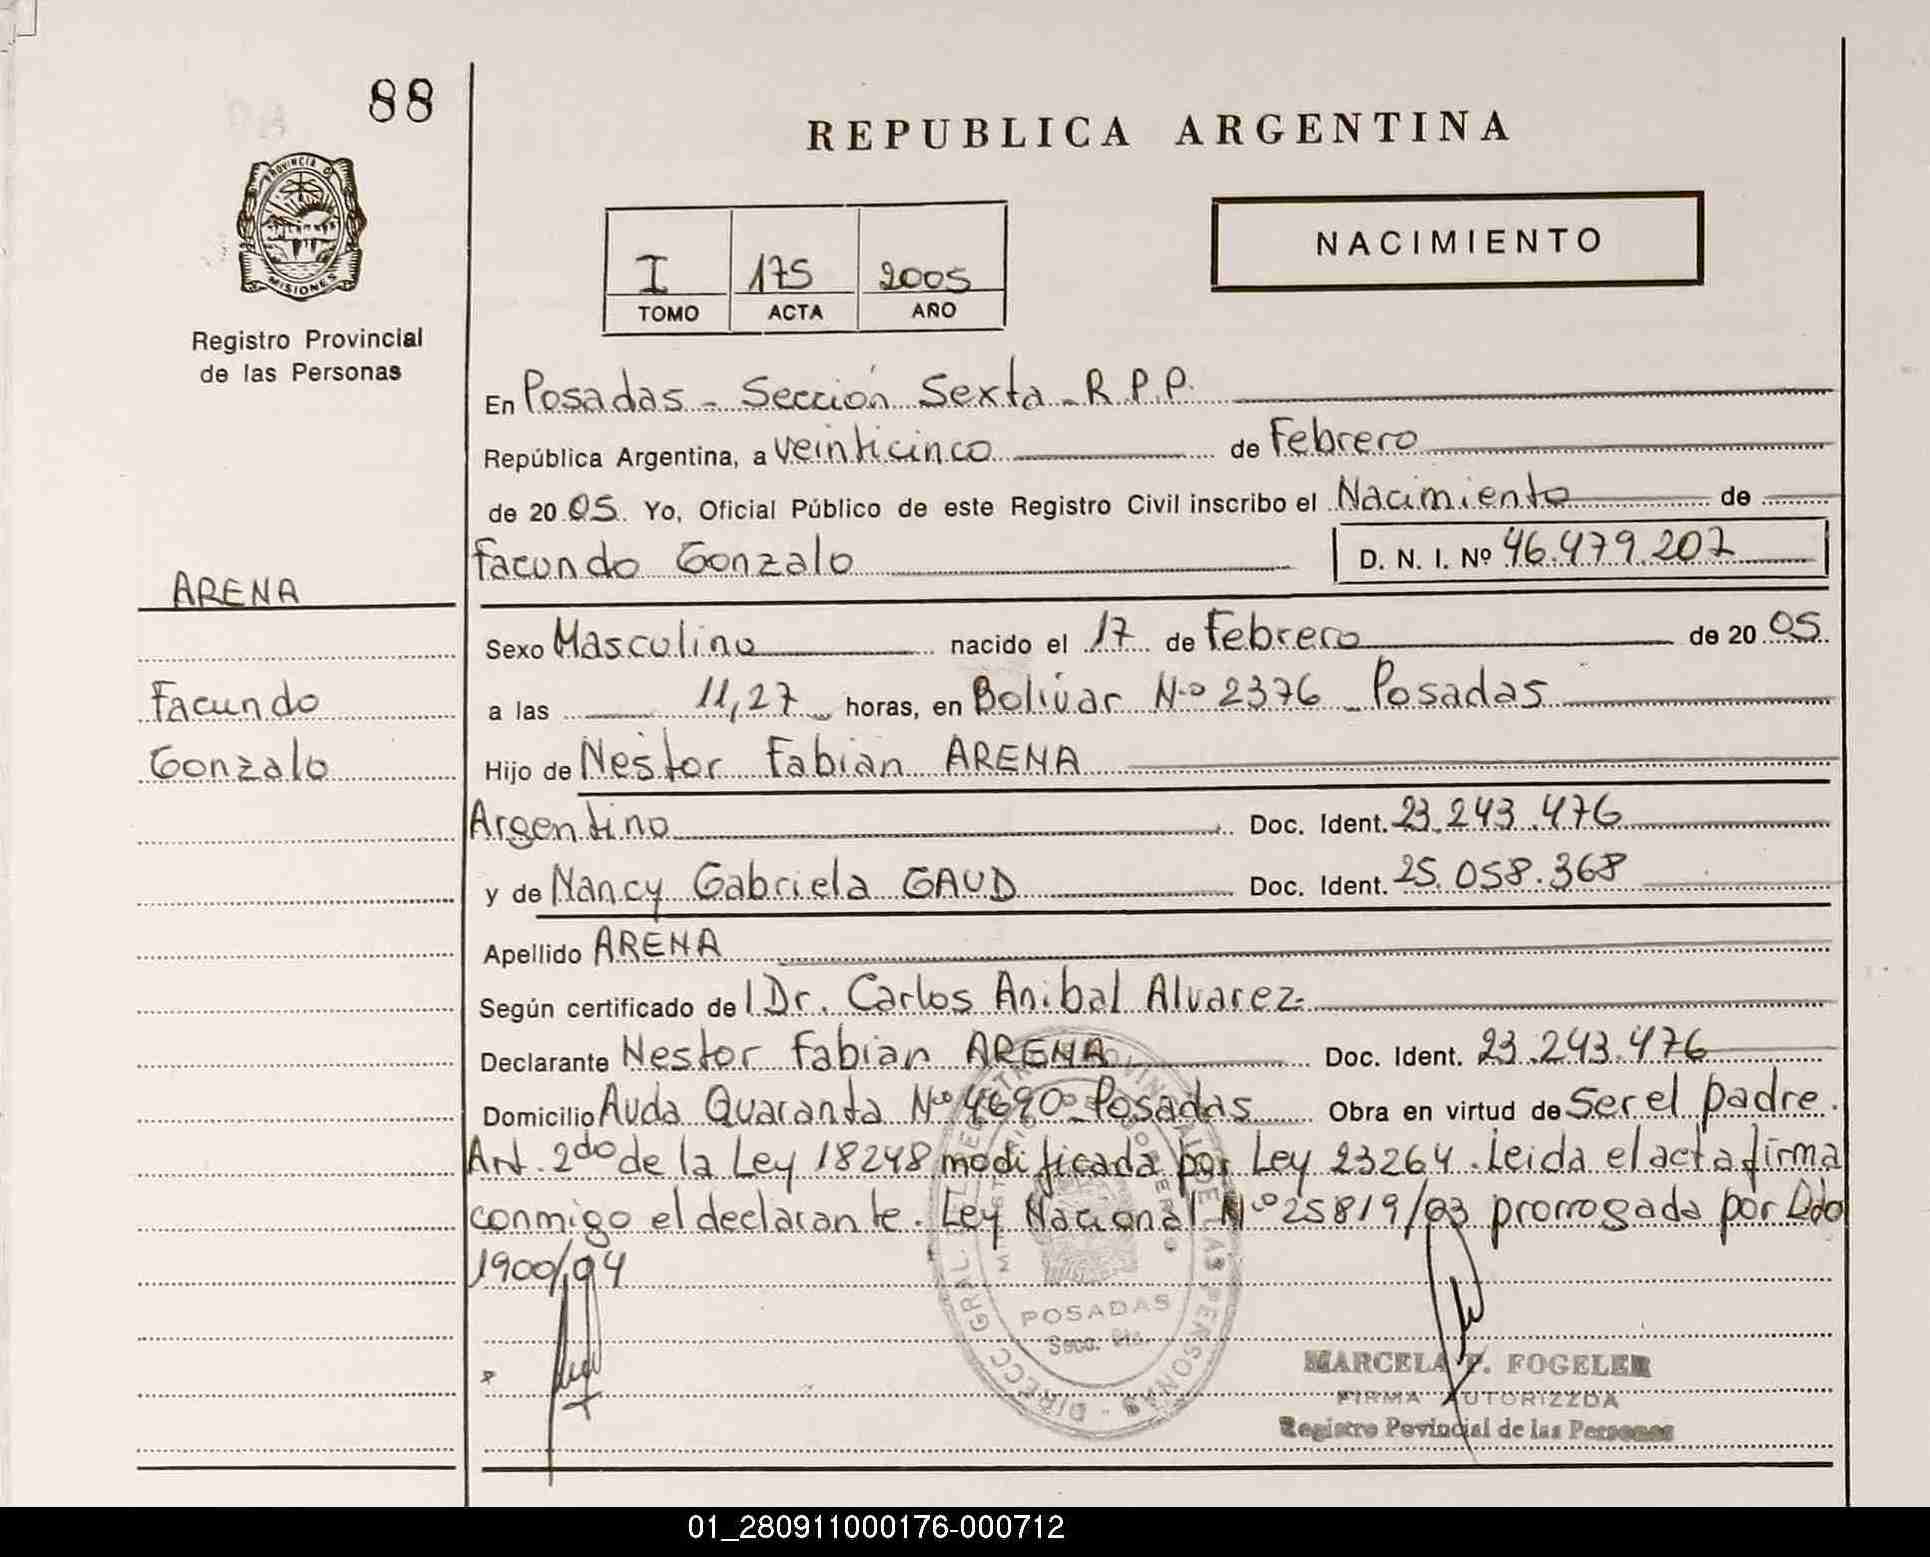 88
REPUBLICA ARGENTINA
PROVINCIA DE
MISIONES
Registro Provincial
de las Personas
I 175 2005
TOMO ACTA AÑO
NACIMIENTO
En Posadas - Sección Sexta - R.P.P.
República Argentina, a veinticinco de Febrero
de 2005. Yo, Oficial Público de este Registro Civil inscribo el Nacimiento de
Facundo Gonzalo D. N. I. Nº 46.479.207
ARENA
Sexo Masculino nacido el 17 de Febrero de 2005.
Facundo
a las 11,27 horas, en Bolívar Nº 2376 - Posadas
Gonzalo
Hijo de Nestor Fabian ARENA
Argentino Doc. Ident. 23.243.476
y de Nancy Gabriela GAUD Doc. Ident. 25.058.368
Apellido ARENA
Según certificado del Dr. Carlos Anibal Alvarez
Declarante Nestor Fabian ARENA Doc. Ident. 23.243.476
Domicilio Avda Quaranta Nº 4690 - Posadas Obra en virtud de Ser el padre.
Art. 2do de la Ley 18248 modificada por Ley 23264. Leida el acta firma
conmigo el declarante. Ley Nacional Nº 25819/03 prorrogada por Dto
1900/04
DIRECC. GRAL. DEL REGISTRO PROVINCIAL DE LAS PERSONAS
POSADAS
MARCELA F. FOGELER
FIRMA AUTORIZZDA
Registro Povincial de las Personas
01_280911000176-000712